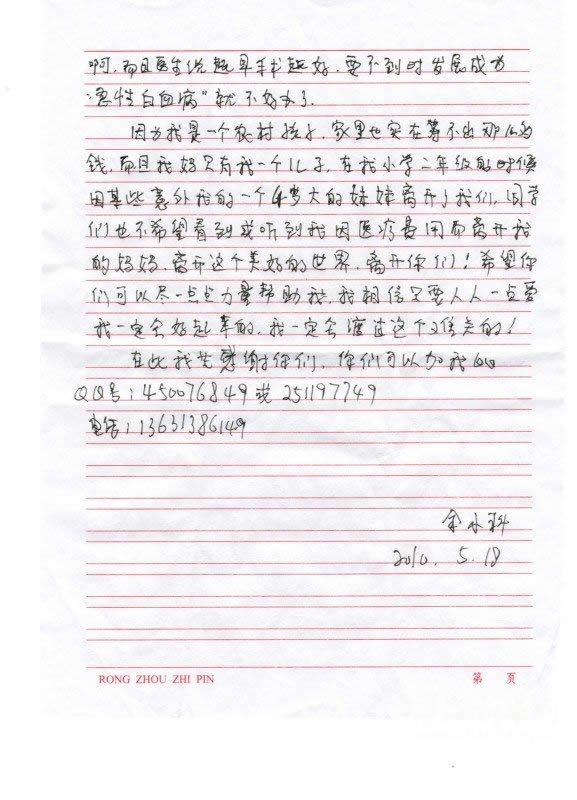 啊,而且医生说越早手术越好,要不到时发展成为
"急性白血病"就不好办了.
因为我是一个农村孩子,家里也实在筹不出那么多
钱,而且我妈只有我一个儿子,在我小学二年级的时候
因某些意外我的一个4岁大的妹妹离开了我们,同学
们也不希望看到或听到我因医疗费用而离开我
的妈妈,离开这个美好的世界,离开你们!希望你
们可以尽一点点力量帮助我,我相信只要人人一点爱
我一定会好起来的,我一定会渡过这个难关的!
在此我先感谢你们,你们可以加我的
QQ号:450076849或251197749
电话:13631386149
余水科
2010. 5.18
RONG ZHOU ZHI PIN 第 页